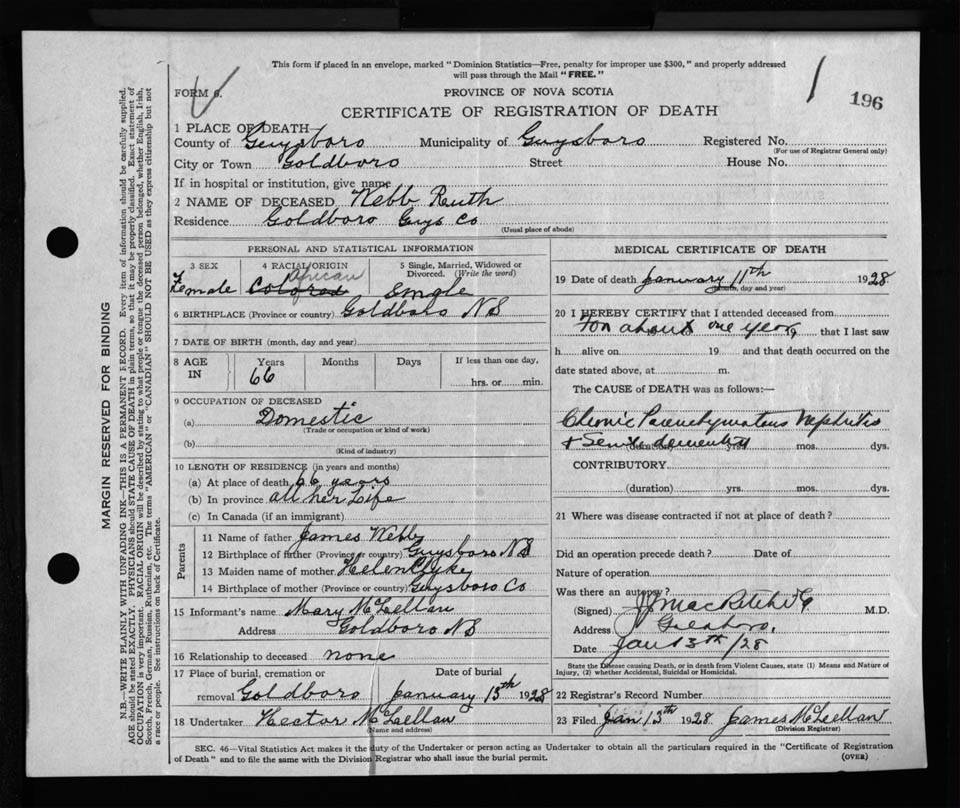 This form if placed in an envelope, marked "Dominion Statistics—Free, penalty for improper use $300," and properly addressed
will pass through the Mail "FREE."
FORM 6.
PROVINCE OF NOVA SCOTIA
196
CERTIFICATE OF REGISTRATION OF DEATH
1 PLACE OF DEATH—
County of Guysboro Municipality of Guysboro Registered No.
(For use of Registrar General only)
City or Town Goldboro Street House No.
If in hospital or institution, give name
2 NAME OF DECEASED Webb Ruth
Residence Goldboro Guys Co
(Usual place of abode)
PERSONAL AND STATISTICAL INFORMATION
3 SEX 4 RACIAL ORIGIN 5 Single, Married, Widowed or
Divorced. (Write the word)
African
Female Colored Single
6 BIRTHPLACE (Province or country) Goldboro NS
7 DATE OF BIRTH (month, day and year)
8 AGE IN Years Months Days If less than one day,
66 hrs. or min.
9 OCCUPATION OF DECEASED
(a) Domestic
(Trade or occupation or kind of work)
(b)
(Kind of industry)
10 LENGTH OF RESIDENCE (in years and months)
(a) At place of death 66 years
(b) In province all her Life
(c) In Canada (if an immigrant)
Parents
11 Name of father James Webb
12 Birthplace of father (Province or country) Guysboro NS
13 Maiden name of mother Helen Clyke
14 Birthplace of mother (Province or country) Guysboro Co
15 Informant's name Mary McLellan
Address Goldboro NS
16 Relationship to deceased none
17 Place of burial, cremation or Date of burial
removal Goldboro January 13th 1928
18 Undertaker Hector McLellan
(Name and address)
MEDICAL CERTIFICATE OF DEATH
19 Date of death January 11th 1928
(Month, day and year)
20 I HEREBY CERTIFY that I attended deceased from
For about one year, 19 that I last saw
h alive on 19 and that death occurred on the
date stated above, at m.
The CAUSE of DEATH was as follows:—
Chronic Parenchymatous Nephritis
& Senile dementia
(duration) yrs. mos. dys.
CONTRIBUTORY
(duration) yrs. mos. dys.
21 Where was disease contracted if not at place of death?
Did an operation precede death? Date of
Nature of operation
Was there an autopsy?
(Signed) M.D.
Address
Date Jan 13th /28
State the Disease causing Death, or in death from Violent Causes, state (1) Means and Nature of
Injury, (2) whether Accidental, Suicidal or Homicidal.
22 Registrar's Record Number
23 Filed Jan 13th 1928 James McLellan
(Division Registrar)
SEC. 46—Vital Statistics Act makes it the duty of the Undertaker or person acting as Undertaker to obtain all the particulars required in the "Certificate of Registration
of Death" and to file the same with the Division Registrar who shall issue the burial permit.
(OVER)
MARGIN RESERVED FOR BINDING
N.B.—WRITE PLAINLY WITH UNFADING INK—THIS IS A PERMANENT RECORD. Every item of information should be carefully supplied.
AGE should be stated EXACTLY. PHYSICIANS should STATE CAUSE OF DEATH in plain terms, so that it may be properly classified. Exact statement of
OCCUPATION is very important. RACIAL ORIGIN will be described by stating to what people or tongue the deceased person belonged, whether English, Irish,
Scotch, French, German, Russian, Ruthenian, etc. The terms "AMERICAN" or "CANADIAN" SHOULD NOT BE USED as they express citizenship but not
a race or people. See instructions on back of Certificate.